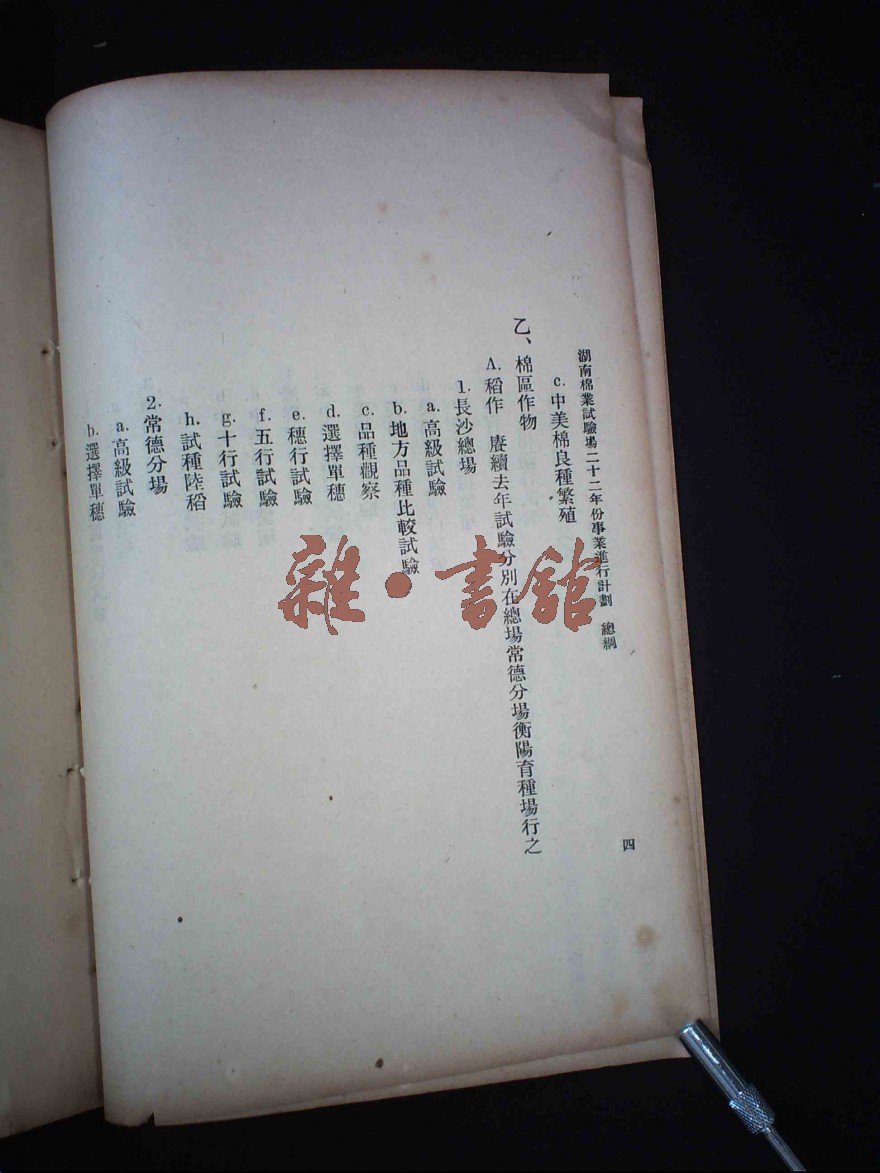 湖南棉業試驗場二十二年份事業進行計劃　總綱
四
c. 中美棉良種繁殖
乙、棉區作物
A. 稻作　賡續去年試驗分別在總場常德分場衡陽育種場行之
1. 長沙總場
a. 高級試驗
b. 地方品種比較試驗
c. 品種觀察
d. 選擇單穗
e. 穗行試驗
f. 五行試驗
g. 十行試驗
h. 試種陸稻
2. 常德分場
a. 高級試驗
b. 選擇單穗
雜·書館